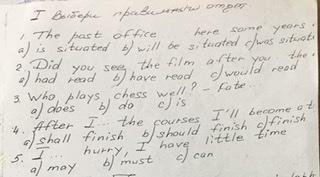 I Выбери правильный ответ
1. The post office ... here some years
a) is situated b) will be situated c) was situat
2. Did you see the film after you ... the
a) had read b) have read c) would read
3. Who plays chess well? – Kate...
a) does b) do c) is
4. After I ... the courses I'll become a t
a) shall finish b) should finish c) finish
5. I ... hurry, I have little time
a) may b) must c) can